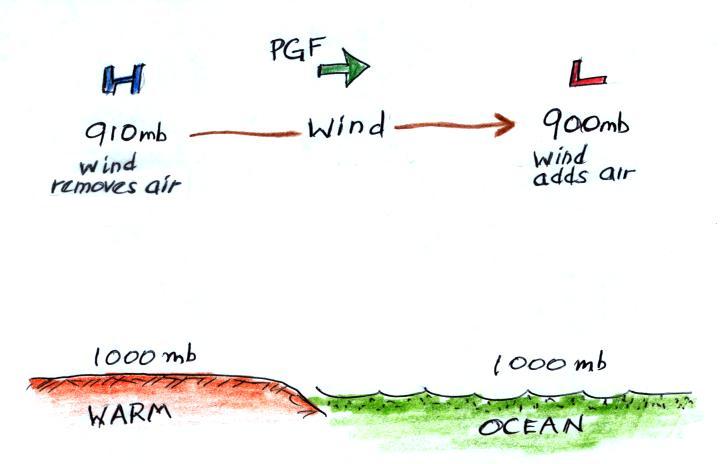 PGF
H
L
910mb
Wind
900mb
wind
removes air
Wind
adds air
1000 mb
1000 mb
WARM
OCEAN